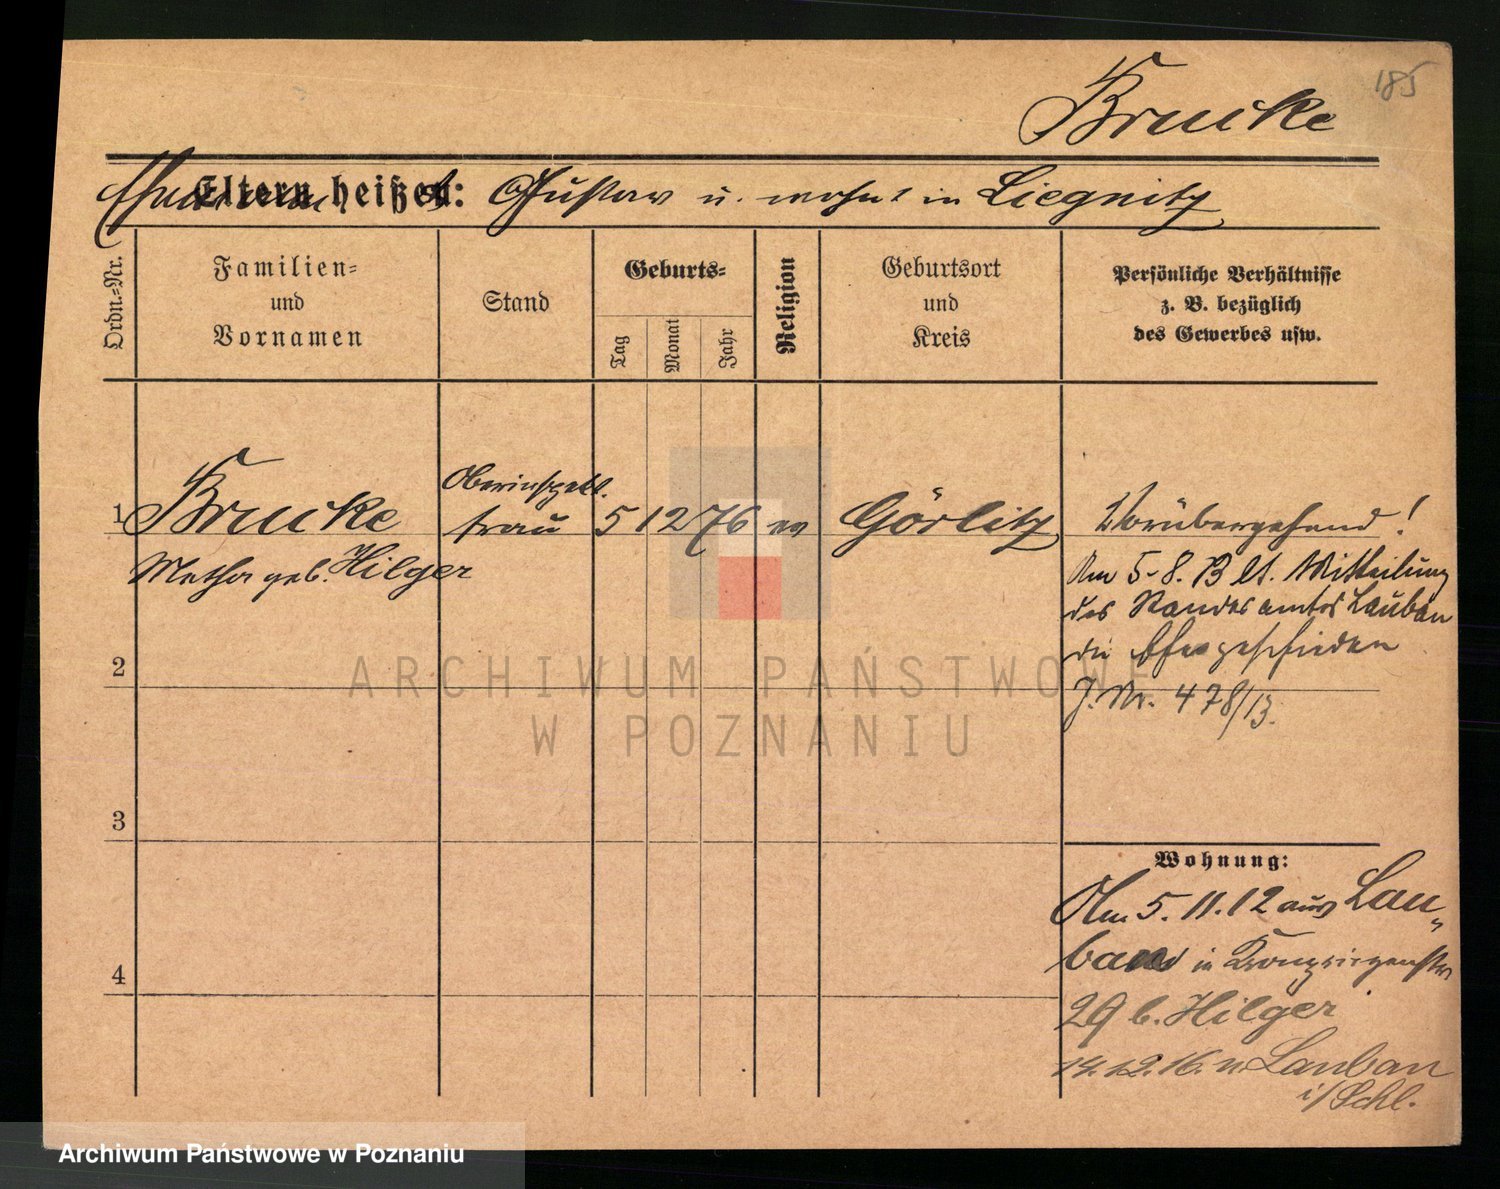 185
Brucke
Eltern heißen: Ehemann Gustav u. wohnt in Liegnitz
Ordn.=Nr.
Familien=
und
Vornamen
Stand
Geburts=
Tag
Monat
Jahr
Religion
Geburtsort
und
Kreis
Persönliche Verhältnisse
z. B. bezüglich
des Gewerbes usw.
1 Brucke Oberinspekt. frau 5 12 76 ev Görlitz Vorübergehend!
Metha geb. Hilger
Am 5.8.13 lt. Mitteilung
des Standesamtes Lauban
die Ehe geschieden
J. Nr. 478/13.
2
3
4
Wohnung:
Am 5.11.12 aus Lau-
ban in
29 b. Hilger
14.12.16. n. Lauban
i/Schl.
ARCHIWUM PAŃSTWOWE
W POZNANIU
Archiwum Państwowe w Poznaniu